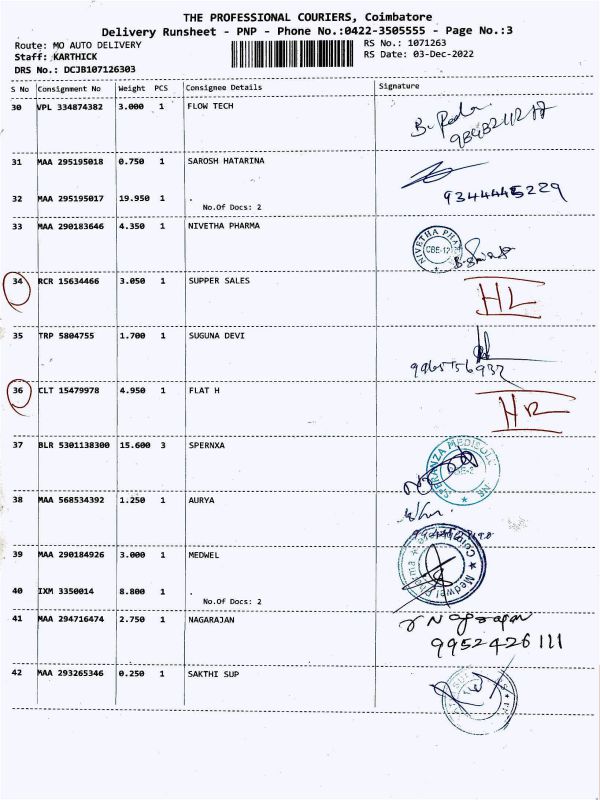 THE PROFESSIONAL COURIERS, Coimbatore
Delivery Runsheet - PNP - Phone No.:0422-3505555 - Page No.:3
Route: MO AUTO DELIVERY RS No.: 1071263
Staff: KARTHICK RS Date: 03-Dec-2022
DRS No.: DCJB107126303
S No Consignment No Weight PCS Consignee Details Signature
30 VPL 334874382 3.000 1 FLOW TECH
31 MAA 295195018 0.750 1 SAROSH HATARINA
9344445229
32 MAA 295195017 19.950 1 .
No.Of Docs: 2
33 MAA 290183646 4.350 1 NIVETHA PHARMA
NIVETHA PHA
CBE-12
34 RCR 15634466 3.050 1 SUPPER SALES
HL
35 TRP 5804755 1.700 1 SUGUNA DEVI
36 CLT 15479978 4.950 1 FLAT H
HR
37 BLR 5301138300 15.600 3 SPERNXA
SPERANZA MEDISOL
38 MAA 568534392 1.250 1 AURYA
39 MAA 290184926 3.000 1 MEDWEL
Medwel Pharma
40 IXM 3350014 8.800 1
No.Of Docs: 2
41 MAA 294716474 2.750 1 NAGARAJAN
9952426111
42 MAA 293265346 0.250 1 SAKTHI SUP